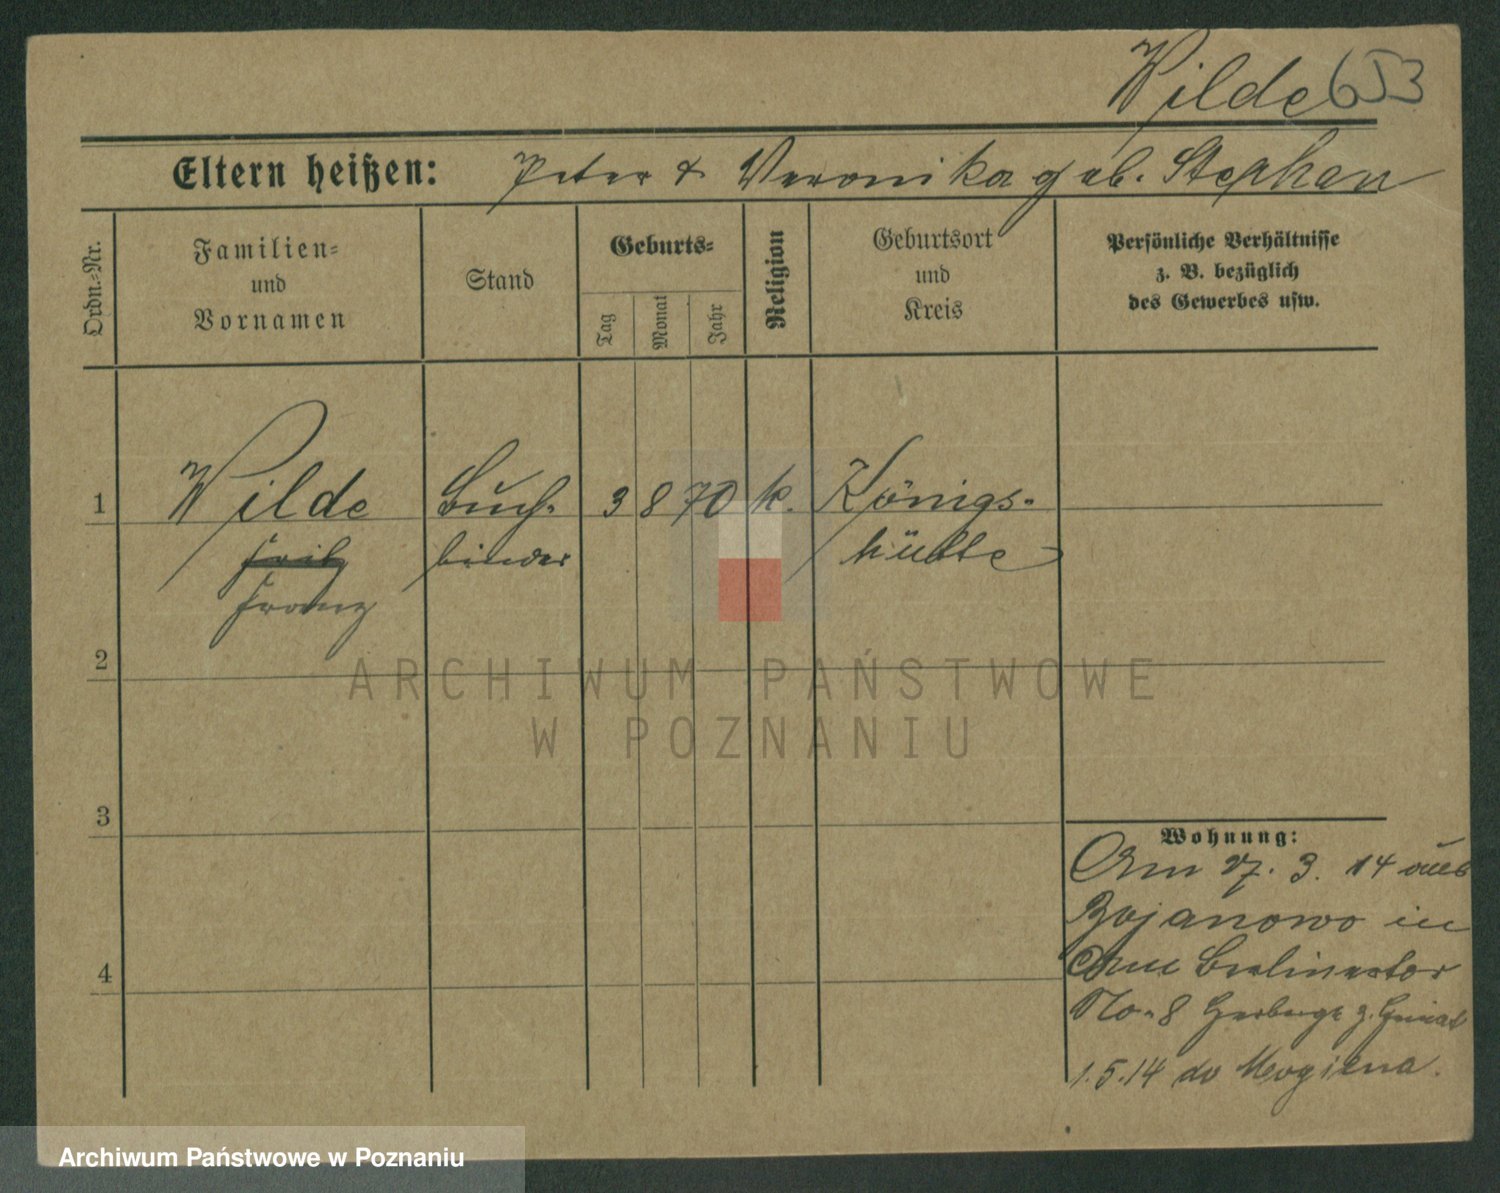 Wilde 653
Eltern heißen: Peter & Veronika geb. Stephan
Ordn.-Nr.
Familien-
und
Vornamen
Stand
Geburts-
Tag
Monat
Jahr
Religion
Geburtsort
und
Kreis
Persönliche Verhältnisse
z. B. bezüglich
des Gewerbes usw.
1 Wilde Buch- 3 8 70 k. Königs-
binder hütte
Franz
2
ARCHIWUM PAŃSTWOWE
W POZNANIU
3
Wohnung:
Am 27. 3. 14 aus
Bojanowo in
Am Berlinertor
4
No. 8 Herberge z. Heimat
1.5.14 do Mogilna.
Archiwum Państwowe w Poznaniu